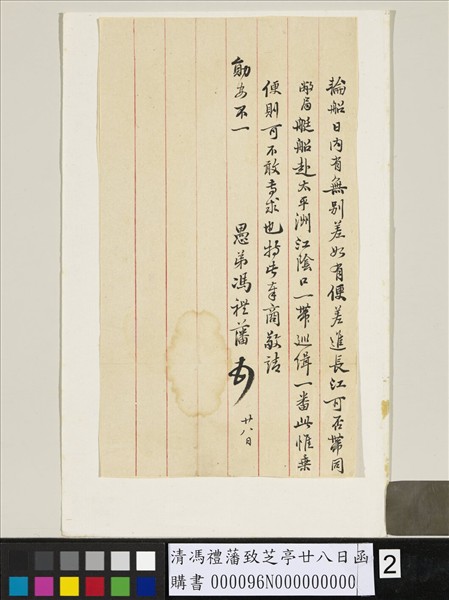 輪船日內有無別差如有便差進長江可否帶同
鄰局艇船赴太平洲江陰口一帶巡緝一番此惟乗
便則可不敢專求也特此奉商敬請
勛安不一
愚弟馮禮藩
廿八日
清馮禮藩致芝亭廿八日函
購書 000096N000000000
2